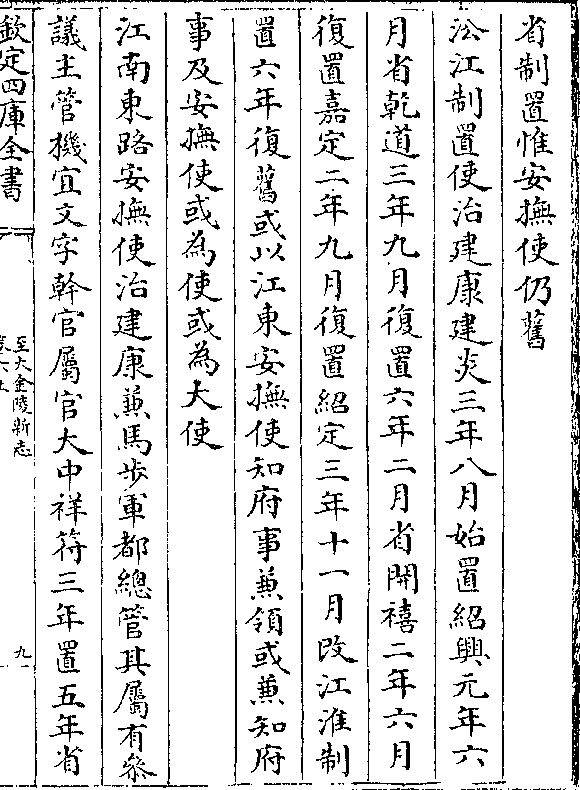 省制置惟安撫使仍舊
㳂江制置使治建康建炎三年八月始置紹興元年六
月省乾道三年九月復置六年二月省開禧二年六月
復置嘉定二年九月復置紹定三年十一月改江淮制
置六年復舊或以江東安撫使知府事兼領或兼知府
事及安撫使或為使或為大使
江南東路安撫使治建康兼馬步軍都總管其屬有叅
議主管機宜文字幹官屬官大中祥符三年置五年省
欽定四庫全書
至大金陵新志
九